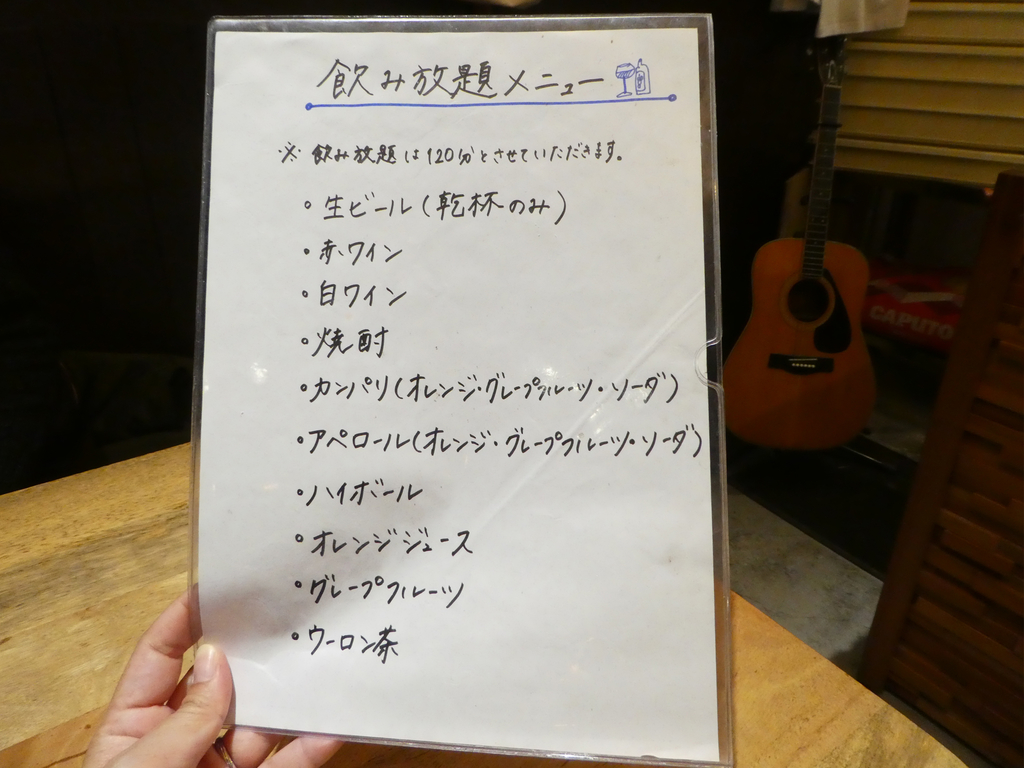 飲み放題メニュー
※ 飲み放題は120分とさせていただきます。
・生ビール(乾杯のみ)
・赤ワイン
・白ワイン
・焼酎
・カンパリ(オレンジ・グレープフルーツ・ソーダ)
・アペロール(オレンジ・グレープフルーツ・ソーダ)
・ハイボール
・オレンジジュース
・グレープフルーツ
・ウーロン茶
CAPUTO